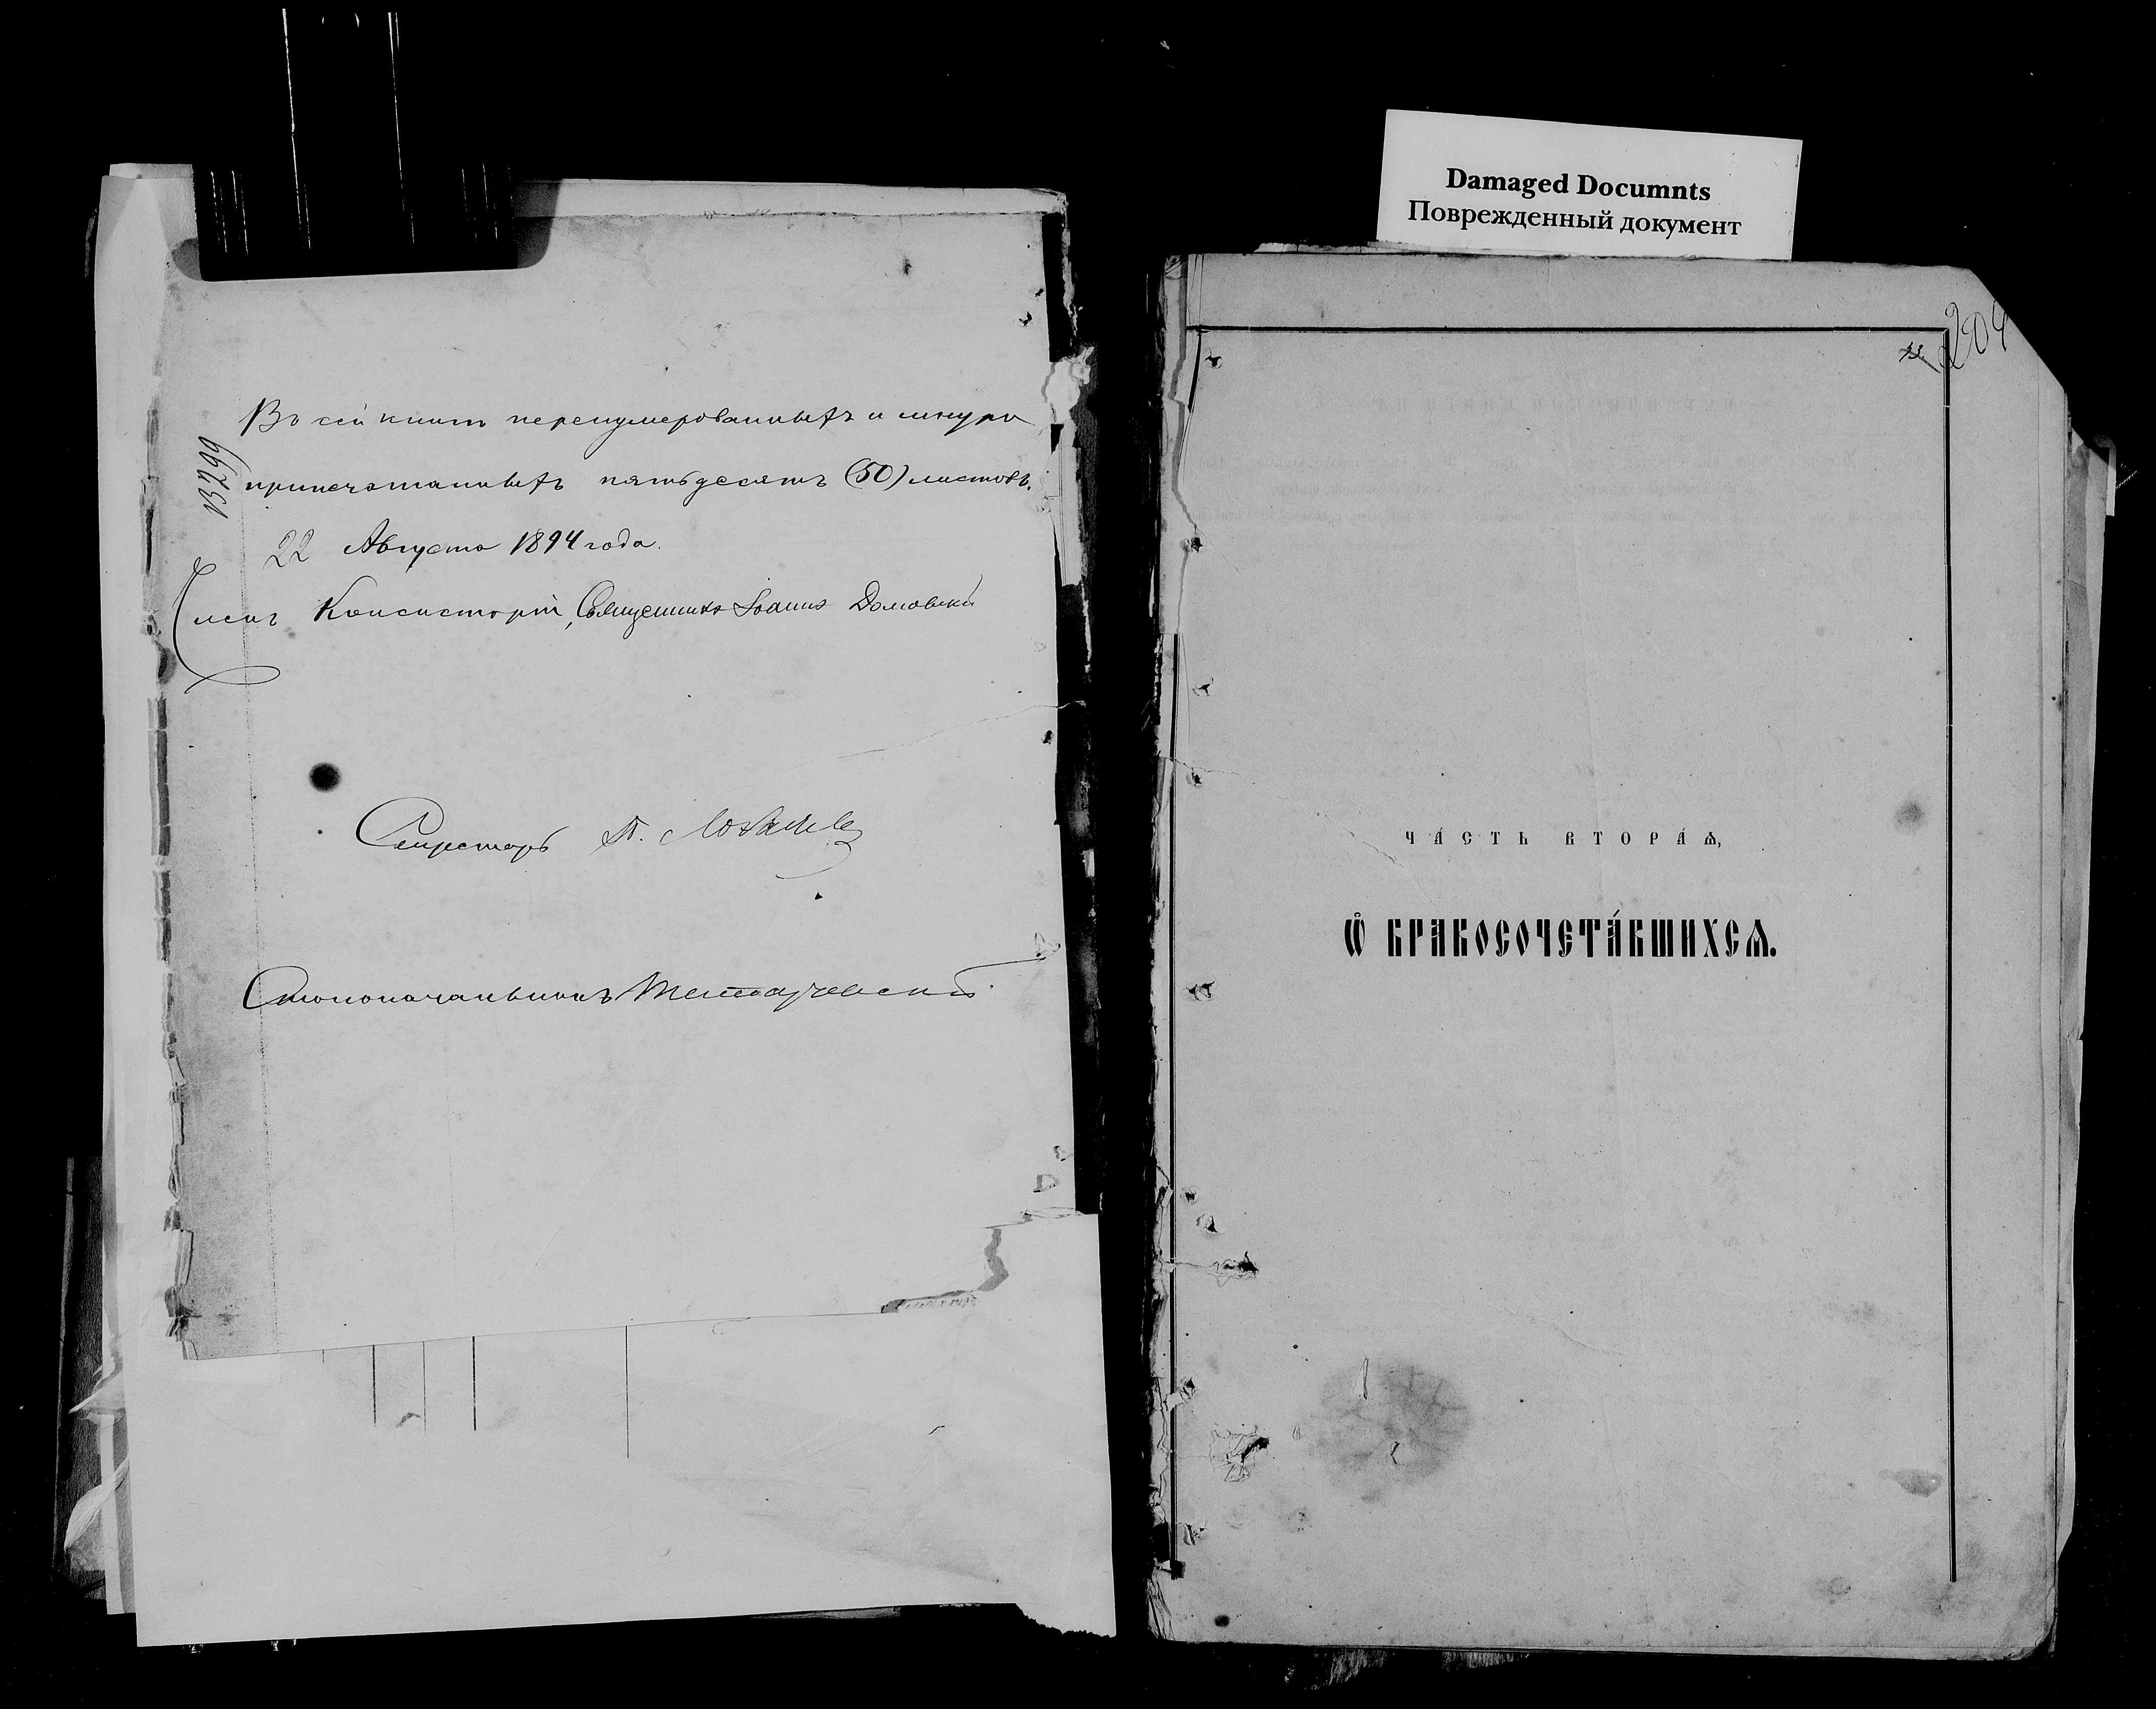 Въ сей книгѣ перенумерованныхъ и шнуро
припечатанныхъ пятьдесятъ (50) листовъ.
22 Августа 1894 года.
Членъ Консисторіи, Священникъ Іоаннъ
Секретарь
Столоначальникъ
13299
Damaged Documnts
Поврежденный документ
204
ЧА́СТЬ ВТОРА́Ѧ,
Ѽ БРАКОСОЧЕТА́ВШИХСѦ.